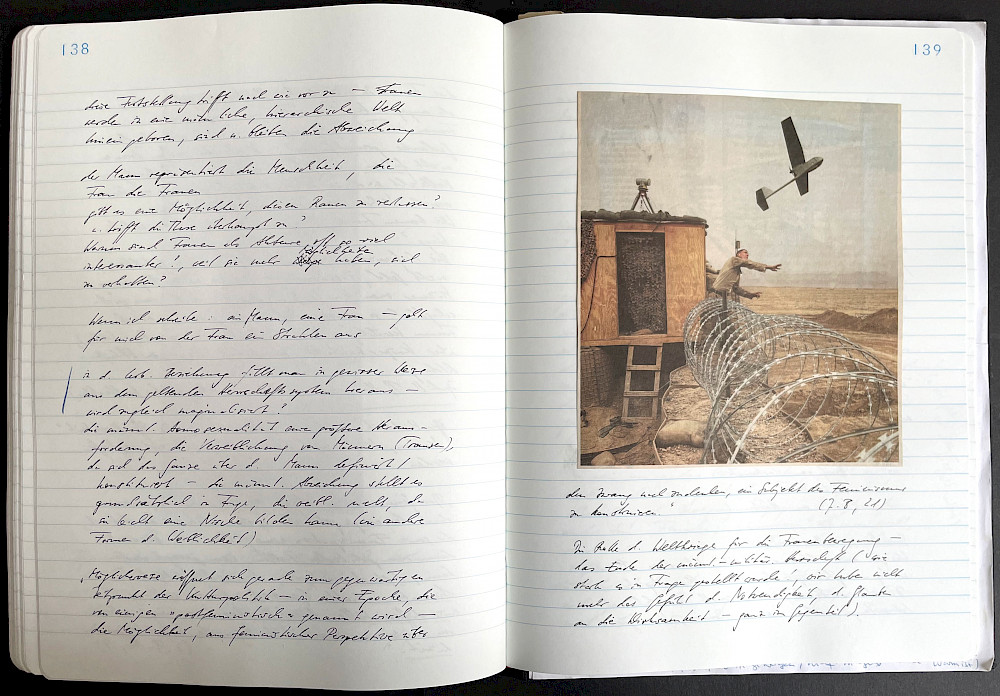 138
diese Feststellung trifft nach wie vor zu – Frauen
werden in eine männliche, hierarchische Welt
hinein geboren, sind u. bleiben die Abweichung
der Mann repräsentiert die Menschheit, die
Frau die Frauen
gibt es eine Möglichkeit, diesen Raum zu verlassen?
u. trifft die These überhaupt zu?
Warum sind Frauen als Akteure oft so viel
interessanter?, weil sie mehr Möglichkeiten haben, sich
zu verhalten?
Wenn ich schreibe: ein Mann, eine Frau – geht
für mich von der Frau ein Strahlen aus
in d. lesb. Beziehung fällt man in gewisser Weise
aus dem geltenden Herrschaftssystem heraus –
wird zugleich marginalisiert?
die männl. Homosexualität eine größere Heraus-
forderung, die Verweiblichung von Männern (Transen),
da sich das Ganze über d. Mann definiert /
konstituiert – die männl. Abweichung stellt es
grundsätzlich in Frage, die weibl. nicht, da
sie leicht eine Nische bilden kann (ein andere
Formen d. Weiblichkeit)
"Möglicherweise eröffnet sich gerade zum gegenwärtigen
Zeitpunkt der Kulturpolitik – in einer Epoche, die
von einigen »postfeministisch« genannt wird –
die Möglichkeit, aus feministischer Perspektive über
139
den Zwang nachzudenken, ein Subjekt des Feminismus
zu konstruieren." (J. B., 21)
Die Rolle d. Weltkriege für die Frauenbewegung –
das Ende der männl.-militär. Herrschaft (wie
stark es in Frage gestellt wurde, wir haben nicht
mehr das Gefühl d. Notwendigkeit, d. Glauben
an die Wirksamkeit – ganz im Gegenteil).